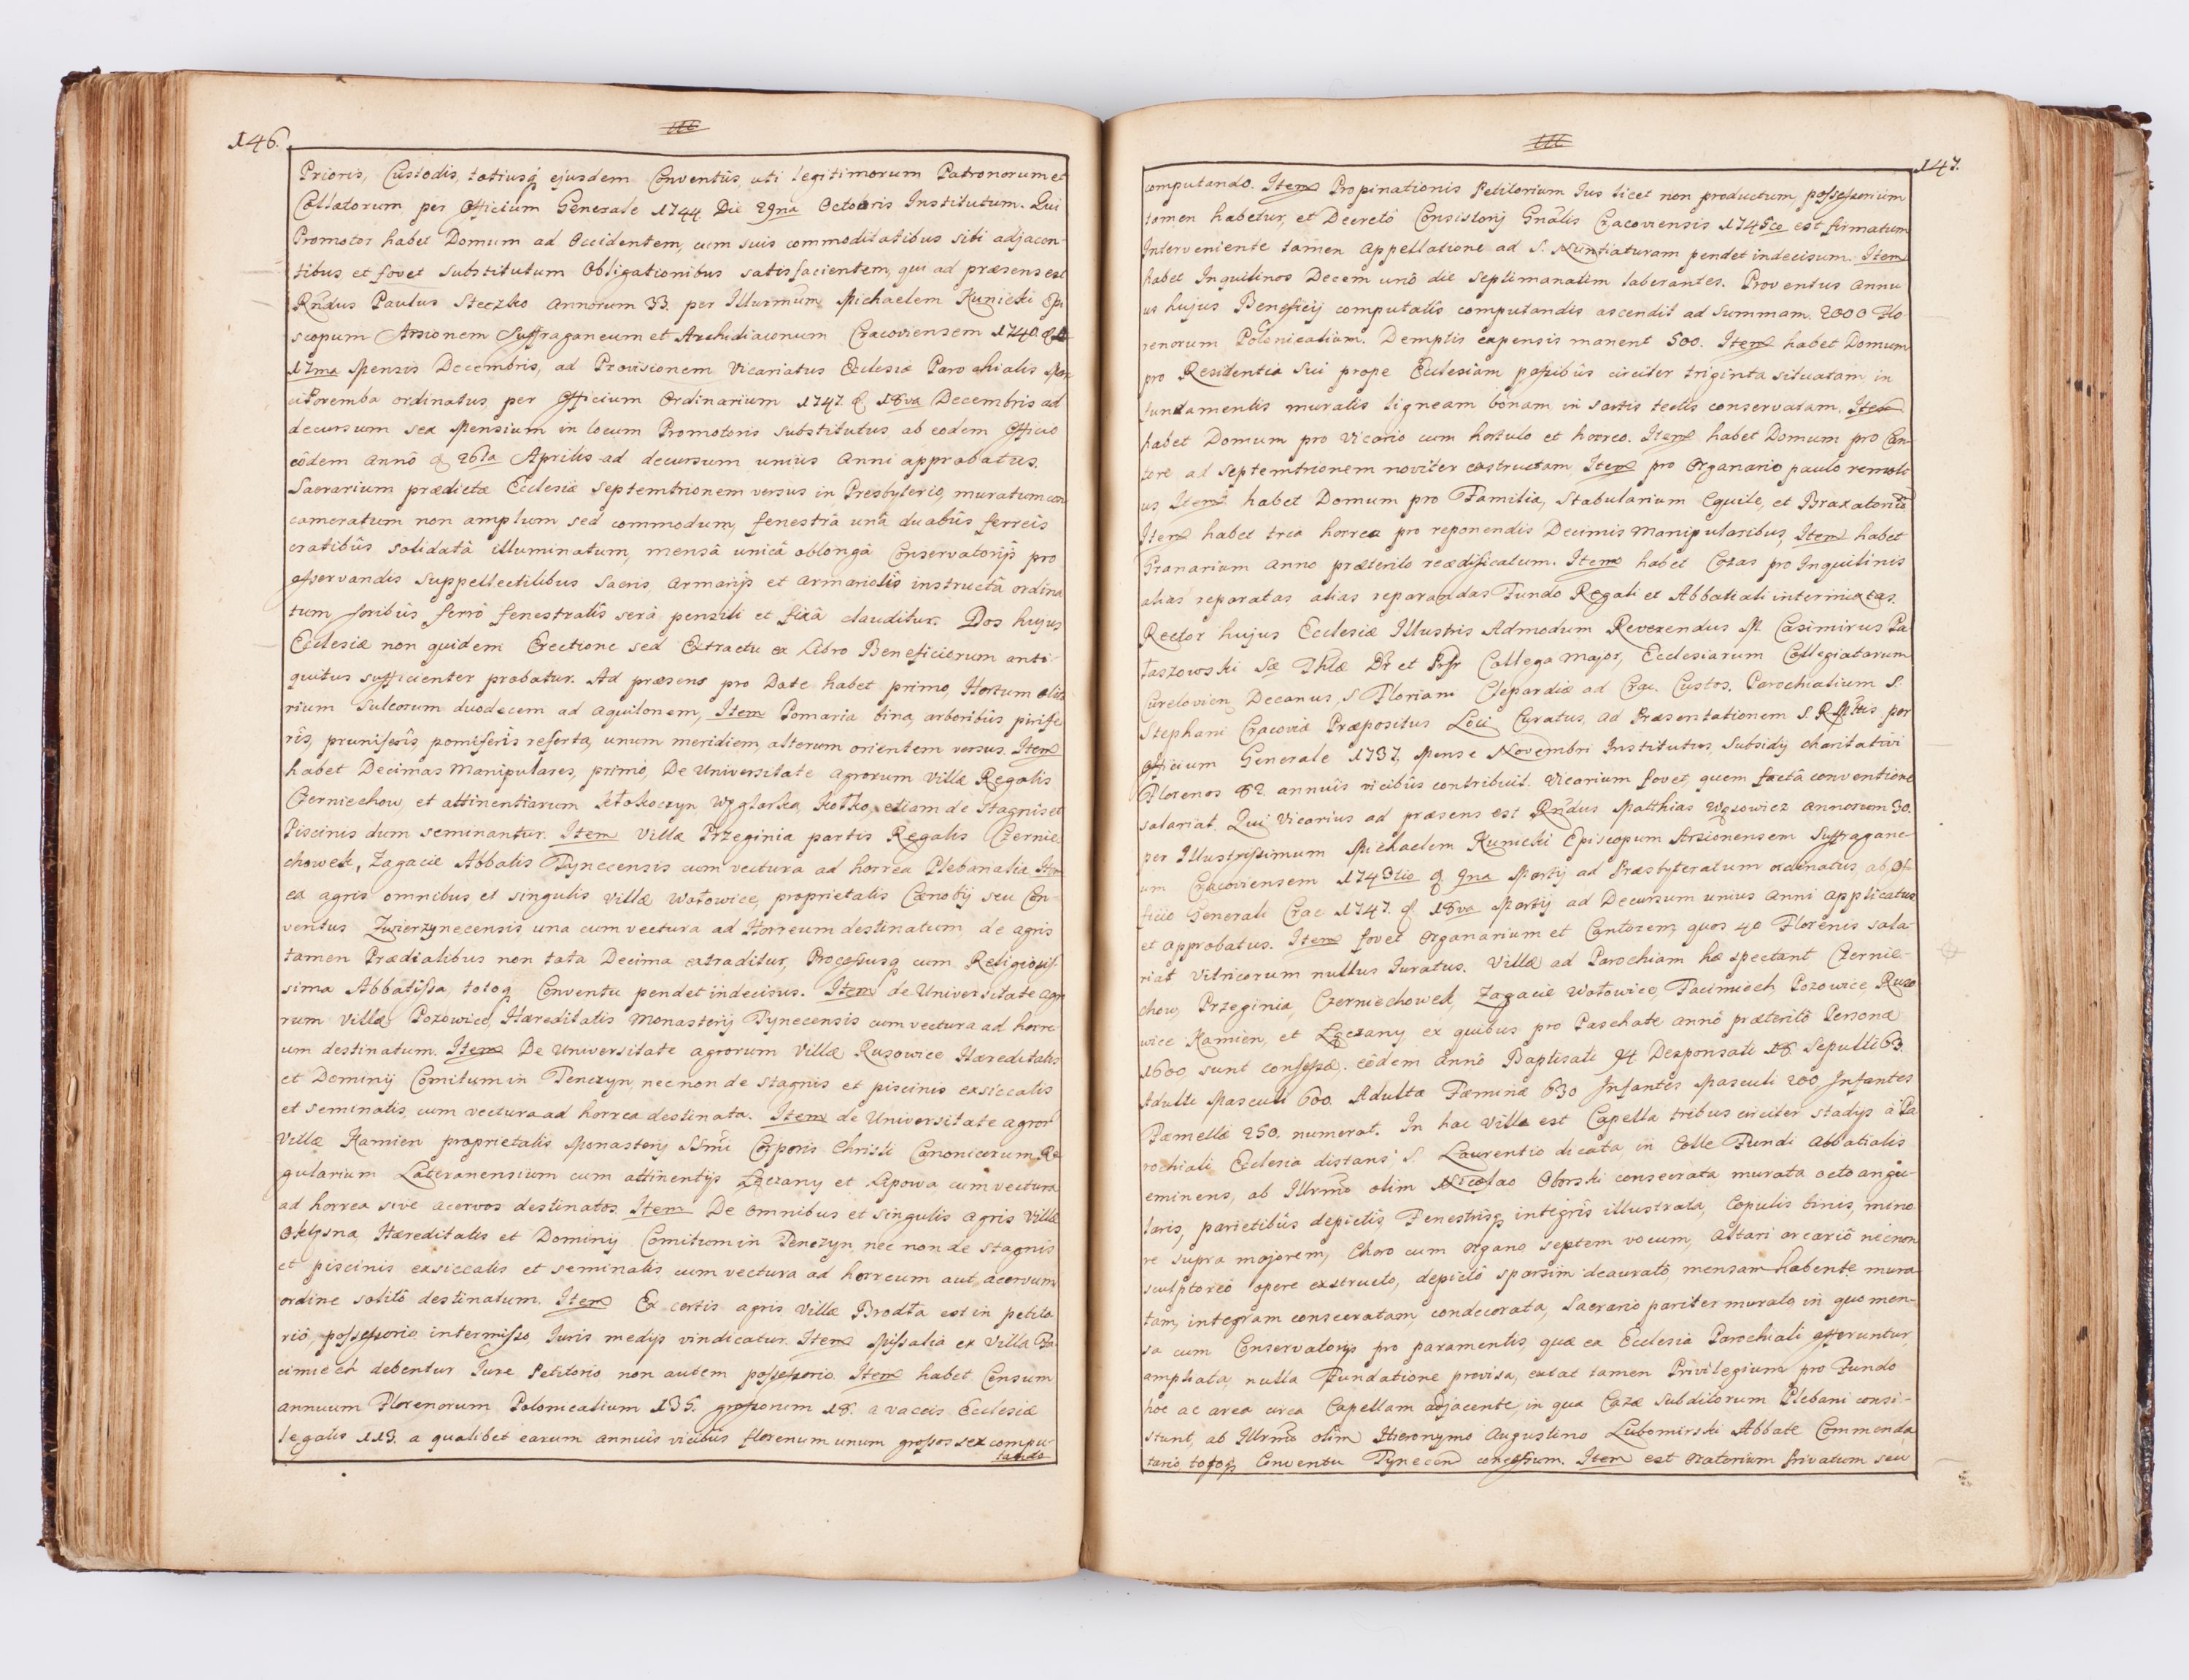 146.
Prioris, Custodis, totiusq ejusdem Conventûs, uti legitimorum Patronorum et
Collatorum per Officium Generale 1744 Die 29na Octobris Institutum. Qui
Promotor habet Domum ad Occidentem, cum suis commoditatibus sibi adjacen-
tibus, et fovet Substitutum Obligationibus satisfacientem, qui ad præsens est
Rndus Paulus Steczko Annorum 33. per Illurmum Michaelem Kunicki Epi
scopum Arsionem Suffraganeum et Archidiaconum Cracoviensem 1740
17ma Mensis Decembris, ad Provisionem Vicariatus Ecclesiæ Parochialis
Poremba ordinatus, per Officium Ordinarium 1747. 18va Decembris ad
decursum sex Mensium in locum Promotoris substitutus, ab eodem Officio
eôdem Annô 26ta Aprilis ad decursum unius Anni approbatus.
Sacrarium prædictæ Ecclesiæ Septemtrionem versus in Presbyterio, muratum con
cameratum non amplum sed commodum, fenestrâ unâ duabûs ferreis
cratibûs solidatâ illuminatum, mensâ unicâ oblongâ Conservatorijs pro
asservandis Suppellectilibus Sacris, Armarijs et Armariolis instructâ ordina
tum foribûs ferrô fenestralis serâ pensili et fixâ clauditur. Dos hujus
Ecclesiæ non quidem Erectione sed Extractu ex Libro Beneficiorum anti-
quitus sufficienter probatur. Ad præsens pro Date habet primo, Hortum olito
rium Sulcorum duodecem ad Aquilonem, Item Pomaria bina, arboribûs pirife
ris, pruniferis, pomiferis referta, unum meridiem, alterum orientem versus. Item
habet Decimas Manipulares, primò, De Universitate Agrorum Villæ Regalis
Czerniechow, et attinentiarum Kłokoczyn, Wyglarka, Kotko, etiam de Stagnis et
Piscinis dum seminantur. Item Villæ Przeginia partis Regalis Czernie-
chowek, Zagacie Abbatis Tynecensis cum vectura ad horrea Plebanalia. Item
ex agris omnibus et singulis Villæ Wołowice, proprietatis Cænobij seu Con-
ventus Zwierzynecensis una cum vectura ad Horreum destinatum, de agris
tamen Prædialibus non tota Decima extraditur, Processusq cum Religiosis-
sima Abbatissa, totoq Conventu pendet indecisus. Item de Universitate Agro
rum Villæ Pozowice, Hæreditatis Monasterij Tynecensis cum vectura ad horre
um destinatum. Item De Universitate Agrorum Villæ Rusowice Hæreditatis
et Dominij Comitum in Tenczyn, nec non de stagnis et piscinis exsiccatis
et seminatis, cum vectura ad horrea destinata. Item de Universitate agror
Villæ Kamien proprietatis Monasterij SSmi Corporis Christi Canonicorum Re
gularium Lateranensium cum attinentijs Łęczany et Lipowa cum vectura
ad horrea sive acervos destinatos. Item De omnibus et singulis Agris Villæ
Oklesna, Hæreditatis et Dominij Comitum in Tenczyn, nec non de Stagnis
et piscinis exsiccatis et seminatis cum vectura ad horreum aut acervum
ordine solitô destinatum. Item Ex certis agris Villæ Brodła est in petito
riô, possessorio intermisso, Iuris medijs vindicatur. Item Missalia ex Villa Fa-
cimiech debentur Iure Petitorio non autem possessorio. Item habet Censum
annuum Florenorum Polonicalium 135. grossorum 18. a vaccis Ecclesiæ
legatis 113. a qualibet earum annuis vicibûs florenum unum grossos sex compu-
tando
147.
computando. Item Propinationis Petitorium Ius licet non productum, possessorium
tamen habetur, et Decretô Consistorij Gnâlis Cracoviensis 1745to est firmatum
Interveniente tamen Appellatione ad S. Nuntiaturam pendet indecisum. Item
habet Inquilinos Decem unô die Septimanatim laborantes. Proventus annu
us hujus Beneficij computatis computandis ascendit ad Summam. 2000 Flo
renorum Polonicalium. Demptis expensis manent 500. Item habet Domum
pro Residentia Sui prope Ecclesiam passibûs circiter triginta situatam, in
fundamentis muratis ligneam bonam, in sartis tectis conservatam. Item
habet Domum pro Vicario cum hortulo et horreo. Item habet Domum pro Can-
tore ad Septemtrionem noviter exstructam Item pro Organario paulo remoti
us Item habet Domum pro Familia, Stabularium Equile, et Braxatoriũ
Item habet tria horrea pro reponendis Decimis Manipularibus, Item habet
Granarium Anno præterito reædificatum. Item habet Cazas pro Inquilinis
alias reparatas alias reparandas Fundo Regali et Abbatiali intermixtas.
Rector hujus Ecclesiæ Illustris Admodum Reverendus M. Casimirus Pa
łaszowski Sæ Thlæ Dr et Pfr Collega Major, Ecclesiarum Collegiatarum
Curelovien Decanus, S. Floriani Clepardiæ ad Crac. Custos, Parochialium S.
Stephani Cracoviæ Præpositus Loci Curatus, ad Præsentationem S. R Mttis per
Officium Generale 1737, Mense Novembri Institutus, Subsidij charitativi
Florenos 82 annuis vicibûs contribuit. Vicarium fovet, quem factâ conventione
salariat. Qui Vicarius ad præsens est Rndus Matthias Wąsowicz annorum 30.
per Illustrissimum Michaelem Kunicki Episcopum Arsionensem Suffragane-
um Cracoviensem 1743tio 9na Martij ad Præsbyteratum ordinatus, ab Of-
ficio Generali Crac 1747. 18va Martij ad Decursum unius Anni applicatus
et approbatus. Item fovet Organarium et Cantorem, quos 40 Florenis sala-
riat Vitricorum nullus Iuratus. Villæ ad Parochiam hæ spectant Czernie-
chow, Przeginia, Czerniechowek, Zagacie Wołowice, Facimiech, Pozowice Ruso
wice Kamien, et Łęczany ex quibus pro Paschate annô præteritô Personæ
1600 sunt confessæ. eôdem annô Baptisati 94 Desponsati 18. Sepulti 63.
Adulti Masculi 600. Adultæ Fæminæ 630 Infantes Masculi 200, Infantes
Fæmellæ 250. numerat. In hac Villa est Capella tribus circiter stadijs à Pa
rochiali Ecclesia distans, S. Laurentio dicata in Colle Fundi Abbatialis
eminens, ab Illrmo olim Nicolao Oborski consecrata murata octo angu-
laris, parietibûs depictis, Fenestrisq integris illustrata, Copulis binis, mino
re supra majorem, Choro cum organo septem vocum, Altari arcariô necnon
sculptoreô opere exstructo, depictô sparsim deauratô, mensam habente mura
tam, integram consecratam, condecorata, Sacrario pariter murato, in quo men-
sa cum Conservatorijs pro paramentis, quæ ex Ecclesia Parochiali afferuntur,
ampliata, nulla Fundatione provisa, extat tamen Privilegium pro Fundo
hoc ac area circa Capellam adjacente, in qua Cazæ Subditorum Plebani consi-
stunt, ab Illrmo olim Hieronymo Augustino Lubomirski Abbate Commenda
tario, totoq Conventu Tynecen concessum. Item est Oratorium privatum seu